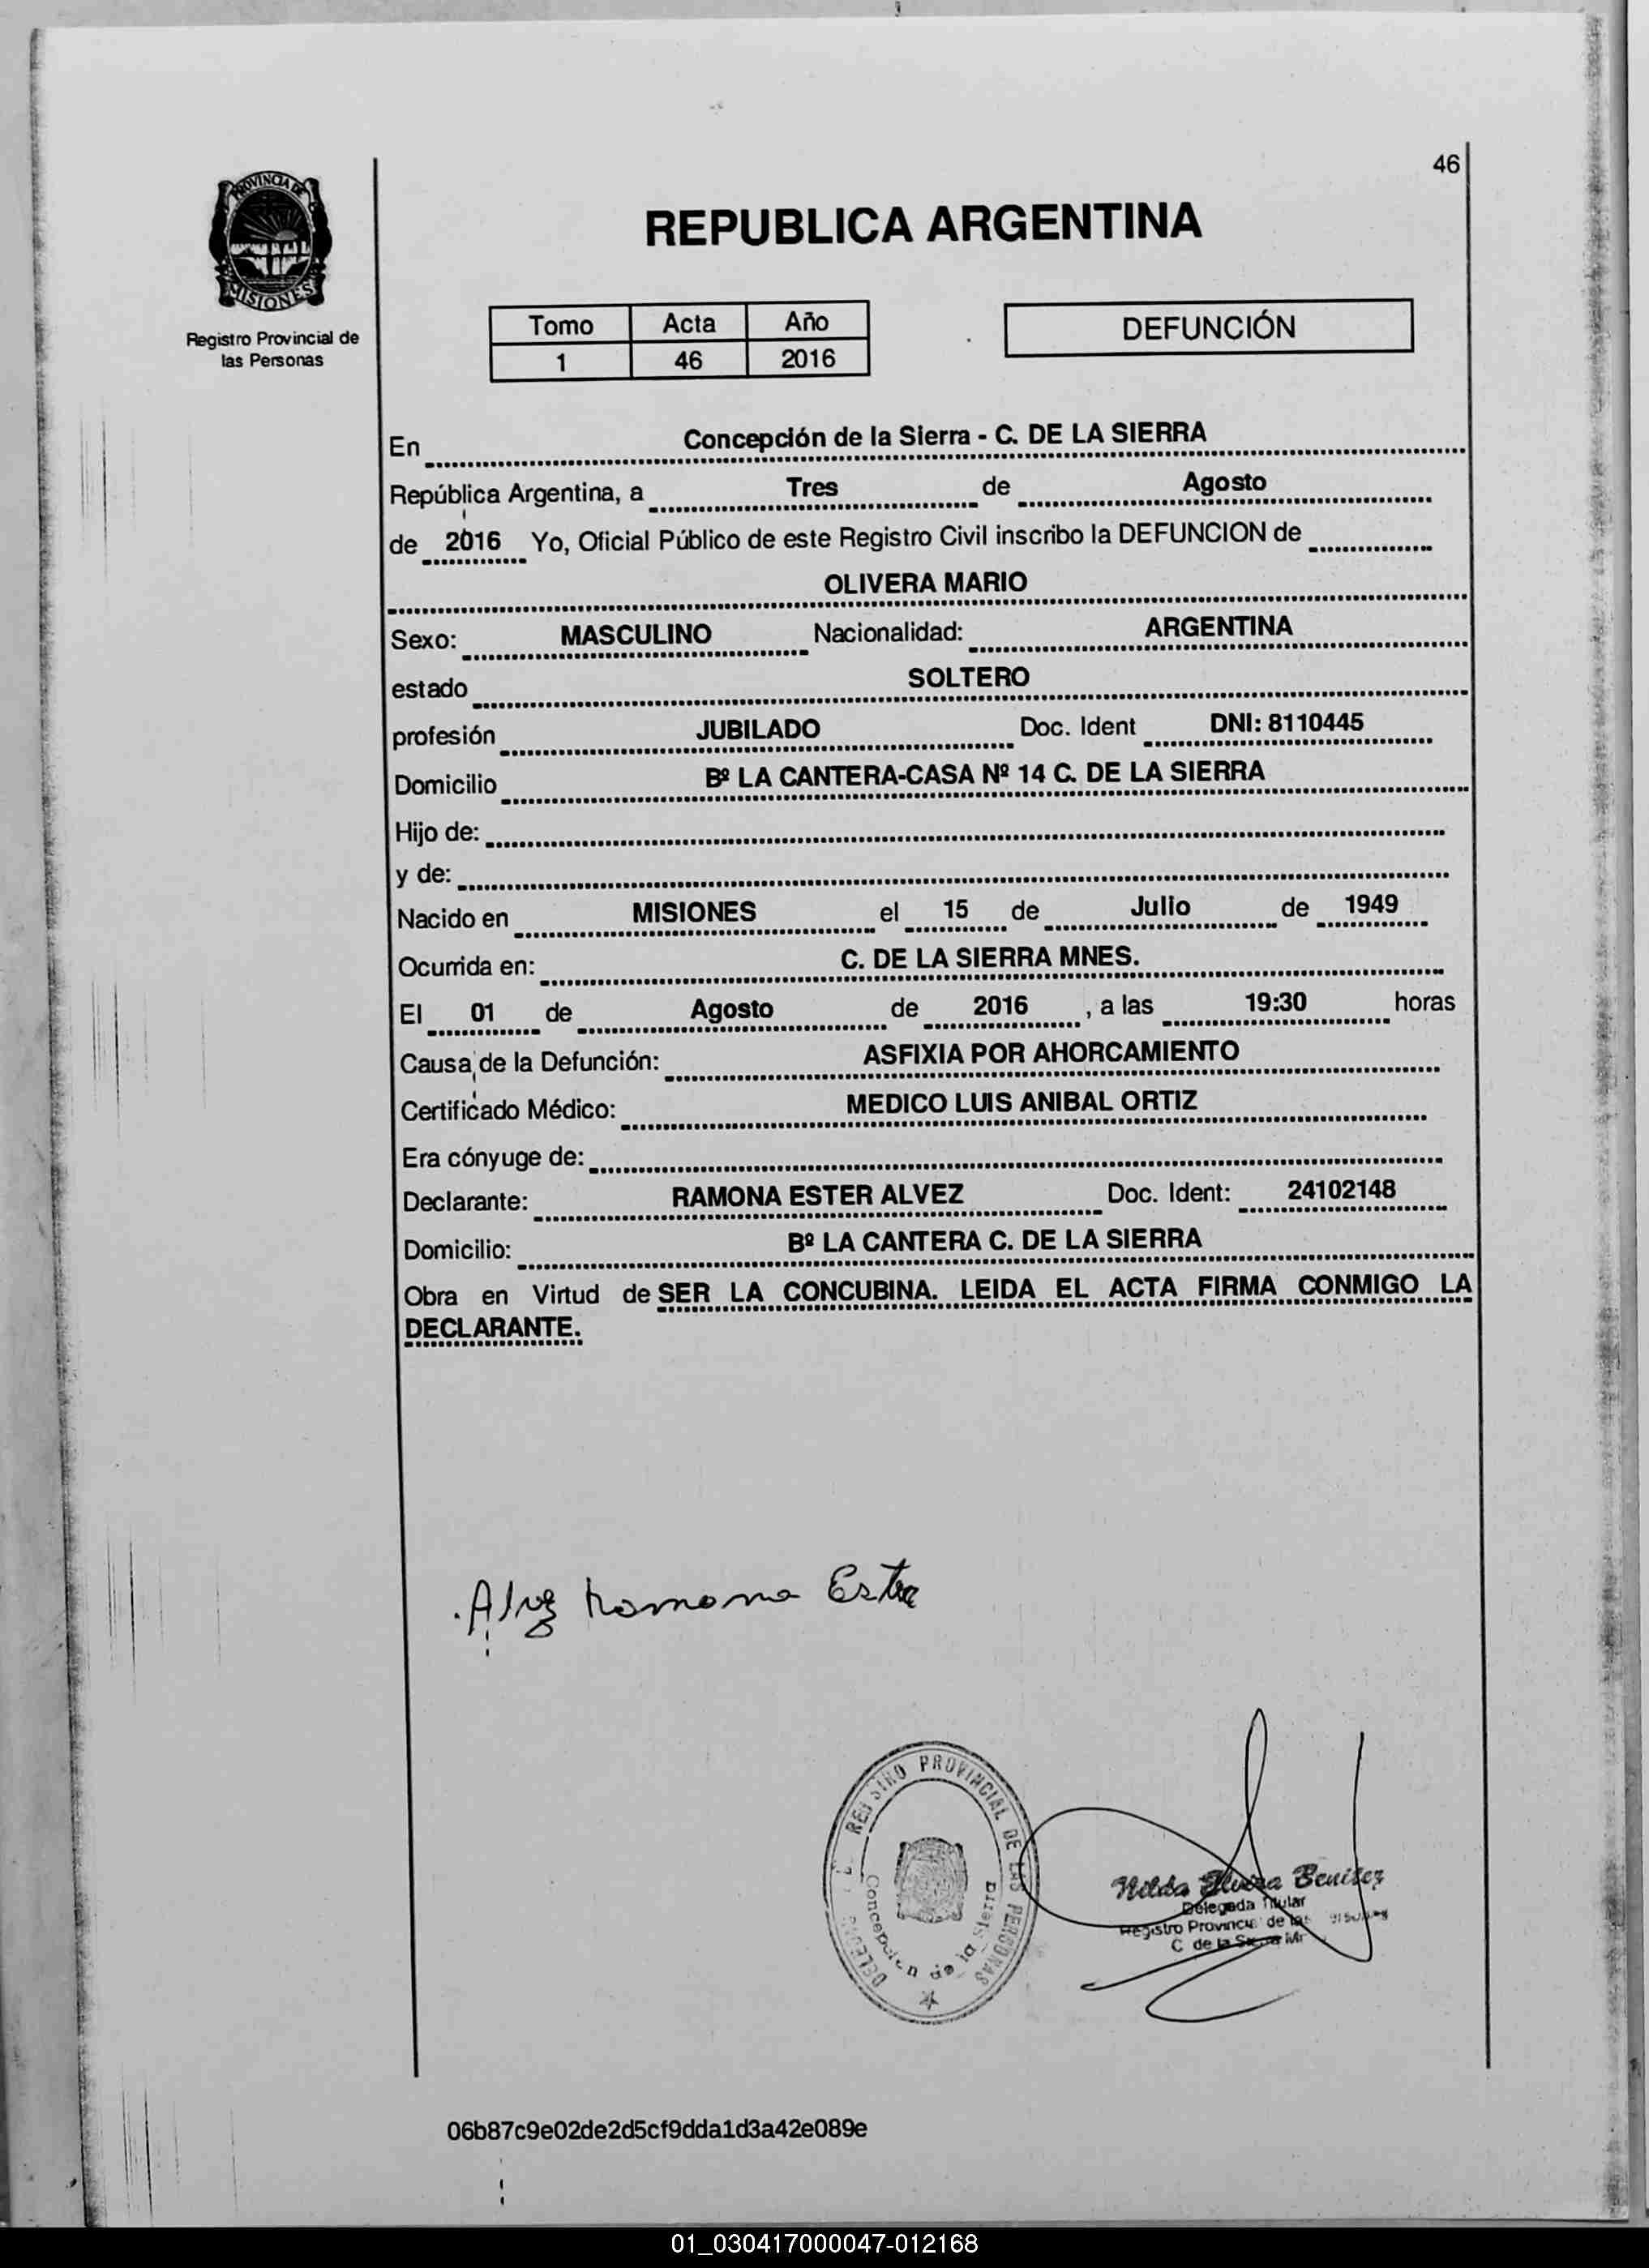 46
PROVINCIA DE
MISIONES
Registro Provincial de
las Personas
REPUBLICA ARGENTINA
Tomo Acta Año
1 46 2016
DEFUNCIÓN
En Concepción de la Sierra - C. DE LA SIERRA
República Argentina, a Tres de Agosto
de 2016 Yo, Oficial Público de este Registro Civil inscribo la DEFUNCION de
OLIVERA MARIO
Sexo: MASCULINO Nacionalidad: ARGENTINA
estado SOLTERO
profesión JUBILADO Doc. Ident DNI: 8110445
Domicilio Bº LA CANTERA-CASA Nº 14 C. DE LA SIERRA
Hijo de:
y de:
Nacido en MISIONES el 15 de Julio de 1949
Ocurrida en: C. DE LA SIERRA MNES.
El 01 de Agosto de 2016 , a las 19:30 horas
Causa de la Defunción: ASFIXIA POR AHORCAMIENTO
Certificado Médico: MEDICO LUIS ANIBAL ORTIZ
Era cónyuge de:
Declarante: RAMONA ESTER ALVEZ Doc. Ident: 24102148
Domicilio: Bº LA CANTERA C. DE LA SIERRA
Obra en Virtud de SER LA CONCUBINA. LEIDA EL ACTA FIRMA CONMIGO LA
DECLARANTE.
Alvez Ramona Ester
REGISTRO PROVINCIAL DE LAS PERSONAS
Concepcion de la Sierra
Nilda Benitez
Delegada Titular
Registro Provincial de las
C de la Sierra
06b87c9e02de2d5cf9dda1d3a42e089e
01_030417000047-012168